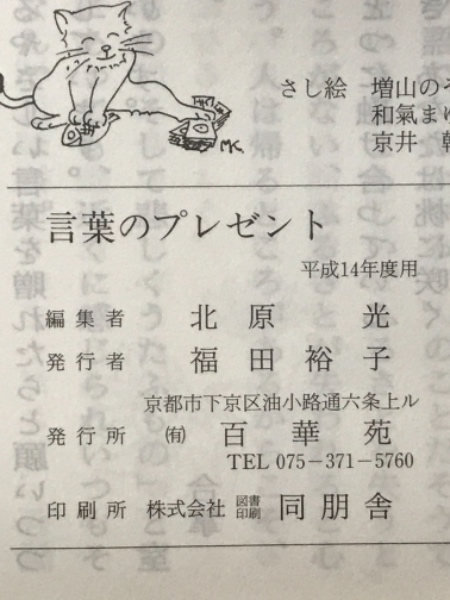 さし絵 増山の
和氣ま
京井
MK
言葉のプレゼント
平成14年度用
編集者 北原 光
発行者 福田裕子
京都市下京区油小路通六条上ル
発行所 ㈲ 百華苑
TEL 075-371-5760
印刷所 株式会社 図書印刷 同朋舎